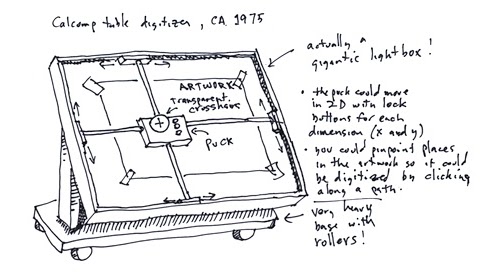 Calcomp table digitizer, CA. 1975
actually a
gigantic lightbox!
ARTWORK
Transparent
crosshairs
PUCK
• the puck could move
in 2-D with lock
buttons for each
dimension (x and y)
• you could pinpoint places
in the artwork so it could
be digitized by clicking
along a path.
very heavy
base with
rollers!